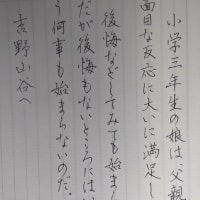 小学三年生の娘は、父親
面目な反応に大いに満足し
後悔などしてみても始ま
だが後悔もないところには
う何事も始まらないのだ。
吉野山谷へ